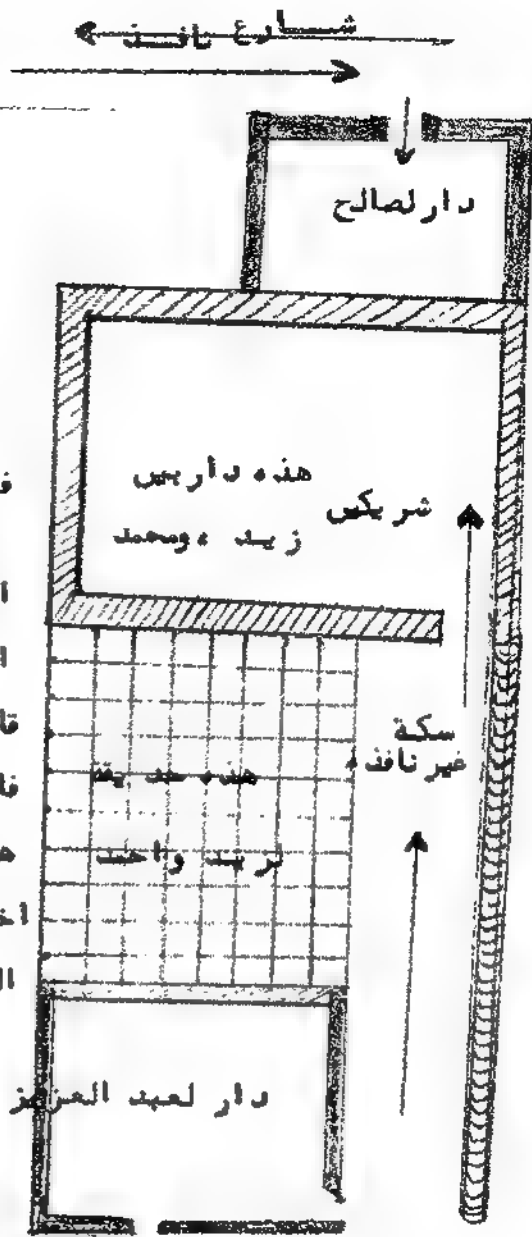 شارع نافذ
دار لصالح
هذه دار بين شريكين
زيد ومحمد
سكة
غير نافذة
هذه حديقة
لزيد واحمد
دار لعبد العزيز